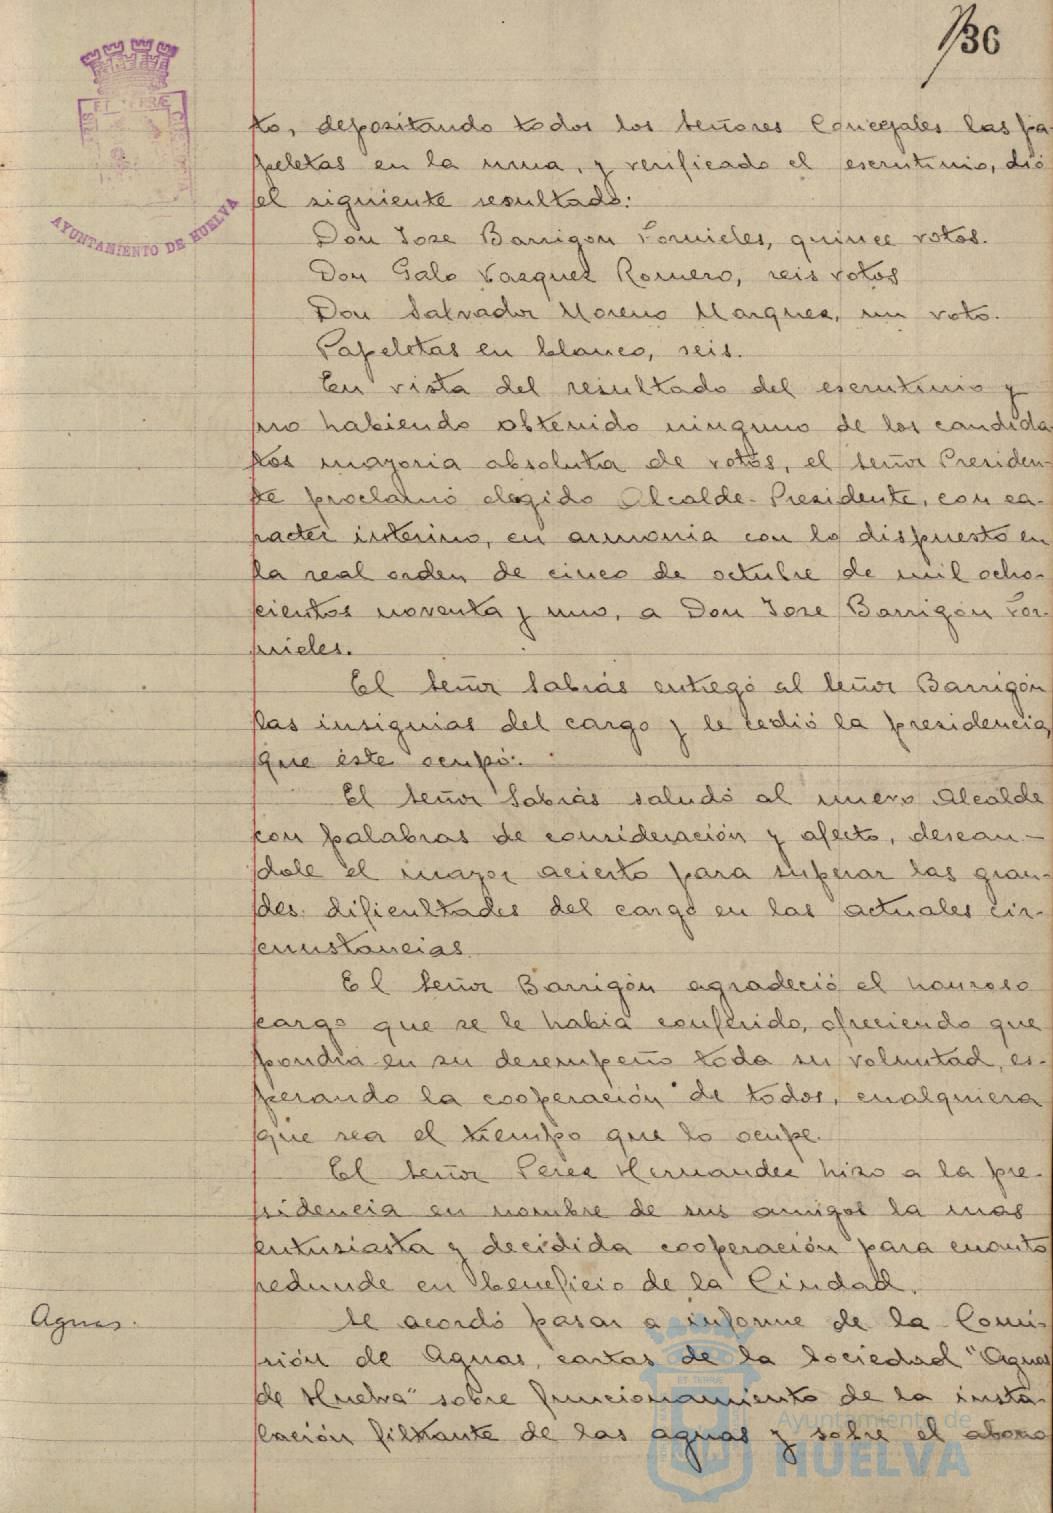 136
to, depositando todos los Señores Concejales las pa-
peletas en la urna, y verificado el escrutinio, dió
el siguiente resultado:
Don Jose Barrigon Fornieles, quince votos.
Don Galo Vazquez Romero, seis votos
Don Salvador Moreno Marquez, un voto.
Papeletas en blanco, seis.
En vista del resultado del escrutinio y
no habiendo obtenido ninguno de los candida-
tos mayoria absoluta de votos, el Señor Presiden-
te proclamó elegido Alcalde-Presidente, con ca-
racter interino, en armonia con lo dispuesto en
la real orden de cinco de octubre de mil ocho-
cientos noventa y uno, a Don Jose Barrigón For-
nieles.
El Señor Sabrás entregó al Señor Barrigón
las insignias del cargo y le cedió la presidencia,
que éste ocupó.
El Señor Sabrás saludó al nuevo Alcalde
con palabras de consideración y afecto, desean-
dole el mayor acierto para superar las gran-
des dificultades del cargo en las actuales cir-
cunstancias.
El Señor Barrigón agradeció el honroso
cargo que se le habia conferido, ofreciendo que
pondria en su desempeño toda su voluntad, es-
perando la cooperación de todos, cualquiera
que sea el tiempo que lo ocupe.
El Señor Perez Hernandez hizo a la pre-
sidencia en nombre de sus amigos la mas
entusiasta y decidida cooperación para cuanto
redunde en beneficio de la Ciudad.
Aguas.
Se acordó pasar a informe de la Comi-
sión de Aguas, cartas de la Sociedad "Aguas
de Huelva" sobre funcionamiento de la insta-
lación filtrante de las aguas y sobre el abono
AYUNTAMIENTO DE HUELVA
Ayuntamiento de
HUELVA